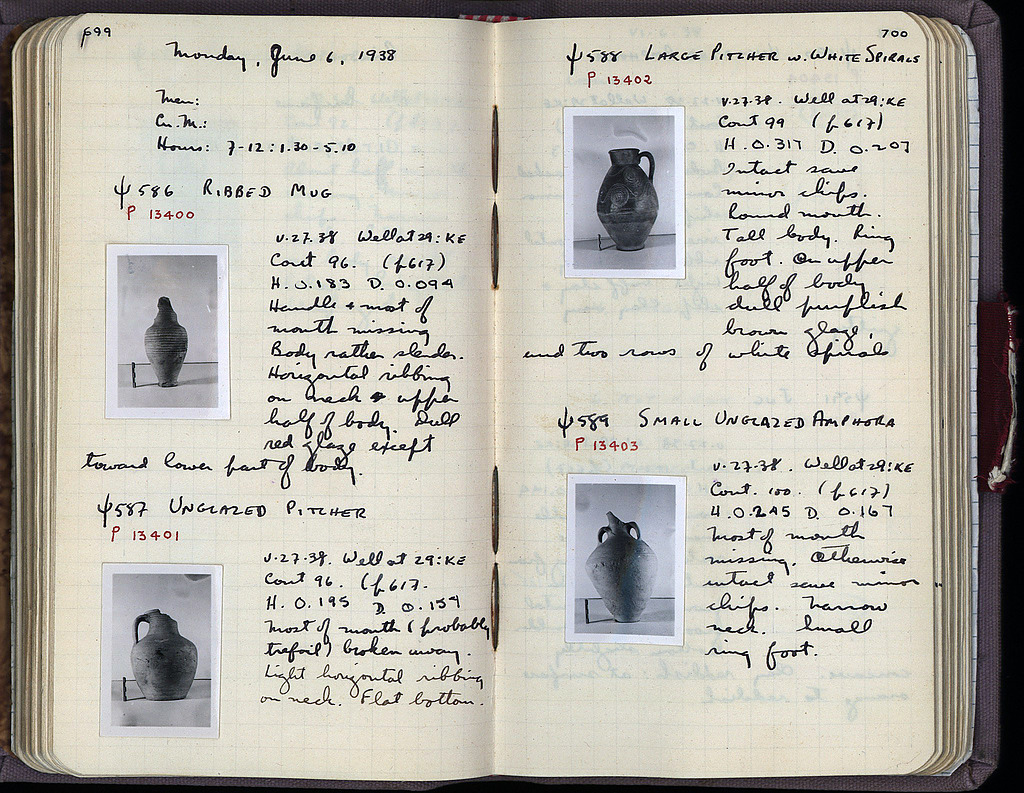 699
Monday, June 6, 1938
Men:
Cu. M.:
Hours: 7-12 : 1.30 - 5.10
ψ586 RIBBED MUG
P 13400
V.27.38 Well at 29:KE
Cont 96. (p617)
H. 0.183 D. 0.094
Handle + most of
mouth missing
Body rather slender.
Horizontal ribbing
on neck + upper
half of body. Dull
red glaze except
toward lower part of body.
ψ587 UNGLAZED PITCHER
P 13401
V.27.38. Well at 29:KE
Cont 96. (p617.
H. 0.195 D. 0.159
Most of mouth (probably
trefoil) broken away.
Light horizontal ribbing
on neck. Flat bottom.
700
ψ588 LARGE PITCHER w. WHITE SPIRALS
P 13402
V.27.38. Well at 29:KE
Cont 99 (p617)
H. 0.317 D. 0.207
Intact save
minor chips.
Round mouth.
Tall body. Ring
foot. On upper
half of body
dull purplish
brown glaze,
and two rows of white spirals
ψ589 SMALL UNGLAZED AMPHORA
P 13403
V.27.38. Well at 29:KE
Cont. 100. (p617)
H. 0.245 D. 0.167
Most of mouth
missing. Otherwise
intact save minor
chips. Narrow
neck. Small
ring foot.